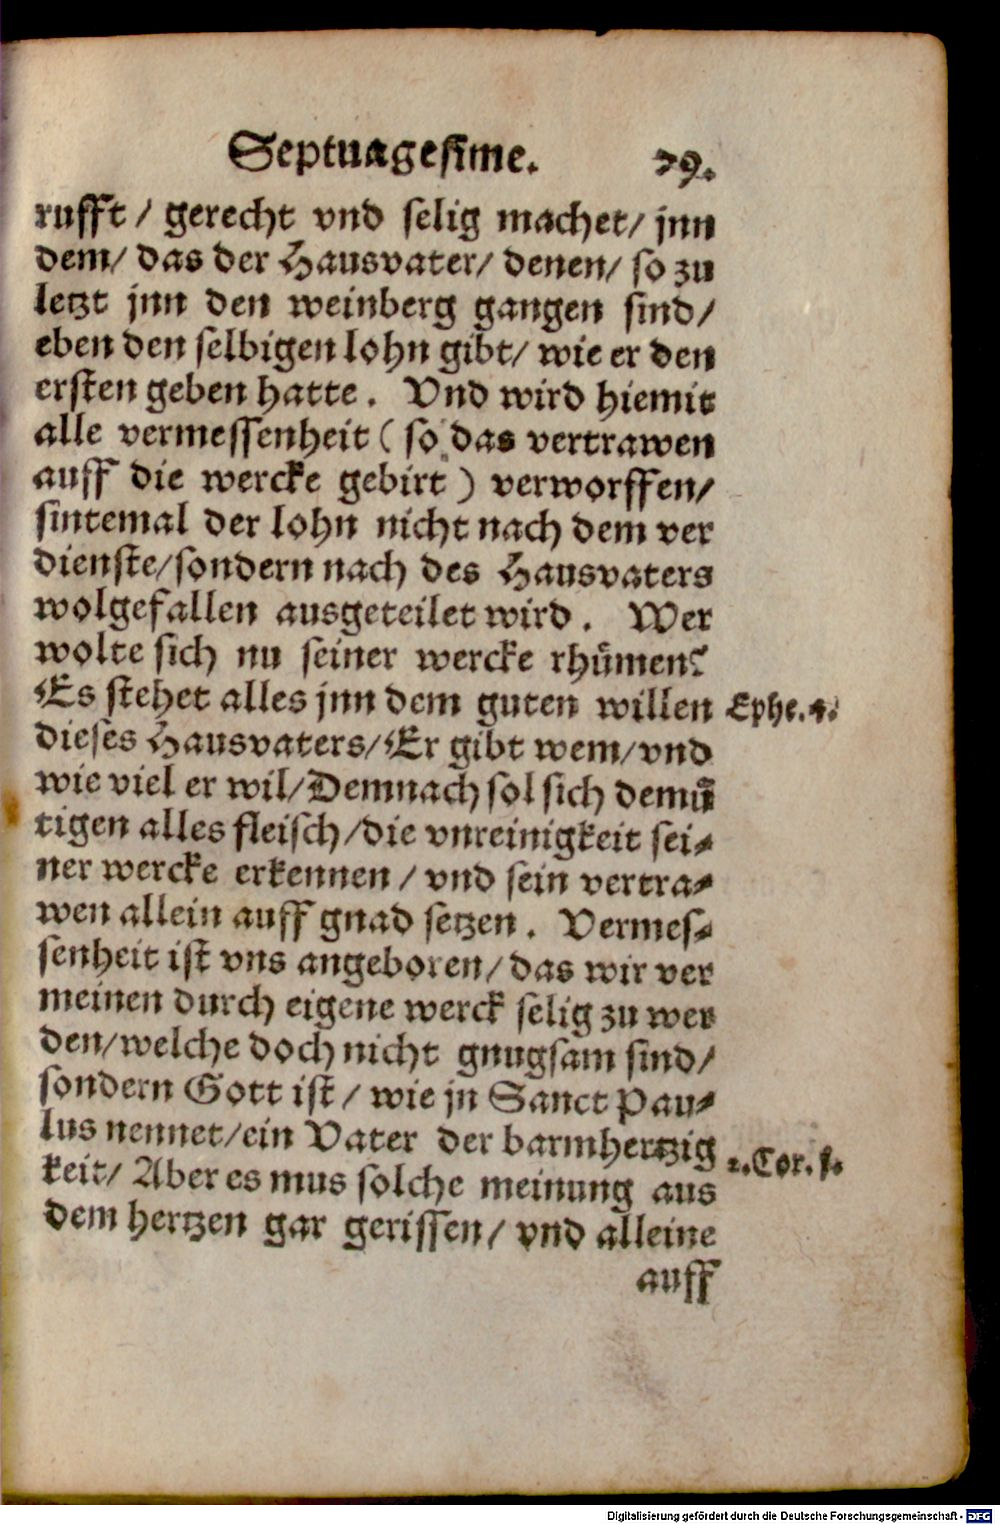 Septuagesime. 79.
rufft / gerecht vnd selig machet / jnn
dem / das der Hausvater / denen / so zu
letzt jnn den weinberg gangen sind /
eben den selbigen lohn gibt / wie er den
ersten geben hatte. Vnd wird hiemit
alle vermessenheit ( so das vertrawen
auff die wercke gebirt ) verworffen /
sintemal der lohn nicht nach dem ver
dienste / sondern nach des Hausvaters
wolgefallen ausgeteilet wird. Wer
wolte sich nu seiner wercke rhümen?
Es stehet alles jnn dem guten willen Ephe. 4.
dieses Hausvaters / Er gibt wem / vnd
wie viel er wil / Demnach sol sich demü
tigen alles fleisch / die vnreinigkeit sei-
ner wercke erkennen / vnd sein vertra-
wen allein auff gnad setzen. Vermes-
senheit ist vns angeboren / das wir ver
meinen durch eigene werck selig zu wer
den / welche doch nicht gnugsam sind /
sondern Gott ist / wie jn Sanct Pau-
lus nennet / ein Vater der barmhertzig
keit / Aber es mus solche meinung aus 2. Cor. 1.
dem hertzen gar gerissen / vnd alleine
auff
Digitalisierung gefördert durch die Deutsche Forschungsgemeinschaft - DFG